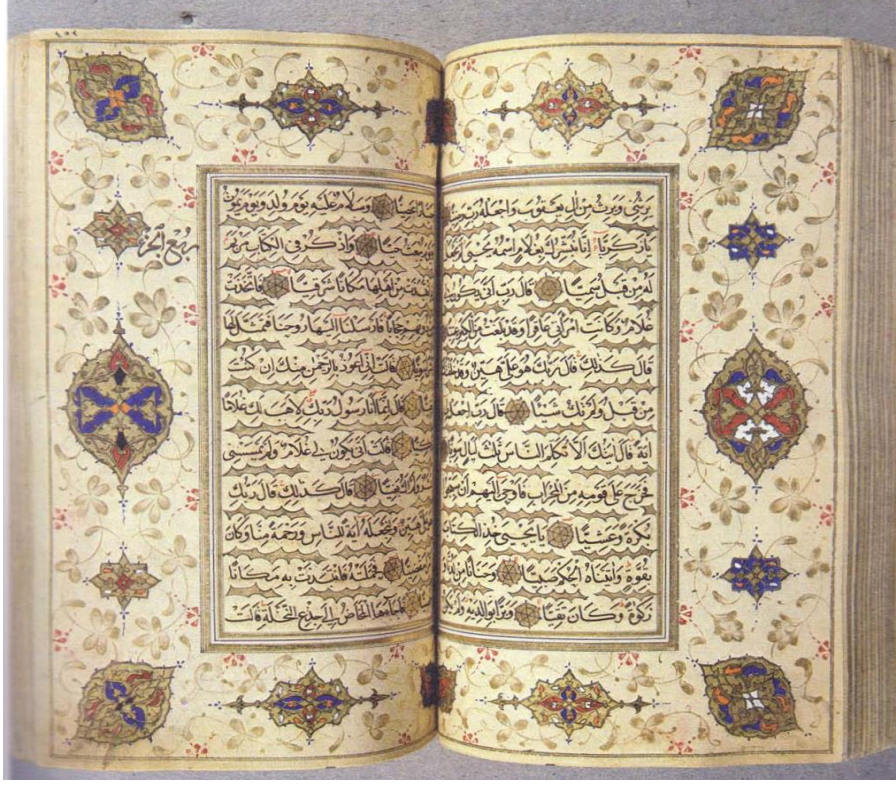 يَرِثُنِي وَيَرِثُ مِنْ اٰلِ يَعْقُوبَ وَاجْعَلْهُ رَبِّ رَضِيًّا
يَا زَكَرِيَّا اِنَّا نُبَشِّرُكَ بِغُلَامٍ اسْمُهُ يَحْيٰى لَمْ نَجْعَلْ
لَهُ مِنْ قَبْلُ سَمِيًّا قَالَ رَبِّ اَنّٰى يَكُونُ لِي
غُلَامٌ وَكَانَتِ امْرَاَتِي عَاقِرًا وَقَدْ بَلَغْتُ مِنَ الْكِبَرِ عِتِيًّا
قَالَ كَذٰلِكَ قَالَ رَبُّكَ هُوَ عَلَيَّ هَيِّنٌ وَقَدْ خَلَقْتُكَ
مِنْ قَبْلُ وَلَمْ تَكُ شَيْئًا قَالَ رَبِّ اجْعَلْ لِي
اٰيَةً قَالَ اٰيَتُكَ اَلَّا تُكَلِّمَ النَّاسَ ثَلٰثَ لَيَالٍ سَوِيًّا
فَخَرَجَ عَلٰى قَوْمِهِ مِنَ الْمِحْرَابِ فَاَوْحٰى اِلَيْهِمْ اَنْ سَبِّحُوا
بُكْرَةً وَعَشِيًّا يَا يَحْيٰى خُذِ الْكِتَابَ
بِقُوَّةٍ وَاٰتَيْنَاهُ الْحُكْمَ صَبِيًّا وَحَنَانًا مِنْ لَدُنَّا
زَكٰوةً وَكَانَ تَقِيًّا وَبَرًّا بِوَالِدَيْهِ وَلَمْ يَكُنْ
عَصِيًّا وَسَلَامٌ عَلَيْهِ يَوْمَ وُلِدَ وَيَوْمَ يَمُوتُ
وَيَوْمَ يُبْعَثُ حَيًّا وَاذْكُرْ فِي الْكِتَابِ مَرْيَمَ
انْتَبَذَتْ مِنْ اَهْلِهَا مَكَانًا شَرْقِيًّا فَاتَّخَذَتْ
دُونِهِمْ حِجَابًا فَاَرْسَلْنَا اِلَيْهَا رُوحَنَا فَتَمَثَّلَ لَهَا
سَوِيًّا قَالَتْ اِنِّي اَعُوذُ بِالرَّحْمٰنِ مِنْكَ اِنْ كُنْتَ
تَقِيًّا قَالَ اِنَّمَا اَنَا رَسُولُ رَبِّكِ لِاَهَبَ لَكِ غُلَامًا
زَكِيًّا قَالَتْ اَنّٰى يَكُونُ لِي غُلَامٌ وَلَمْ يَمْسَسْنِي
بَشَرٌ وَلَمْ اَكُ بَغِيًّا قَالَ كَذٰلِكِ قَالَ رَبُّكِ
هُوَ عَلَيَّ هَيِّنٌ وَلِنَجْعَلَهُ اٰيَةً لِلنَّاسِ وَرَحْمَةً مِنَّا وَكَانَ
مَقْضِيًّا فَحَمَلَتْهُ فَانْتَبَذَتْ بِهِ مَكَانًا
قَصِيًّا فَاَجَاءَهَا الْمَخَاضُ اِلٰى جِذْعِ النَّخْلَةِ قَالَتْ
ربع الجزء